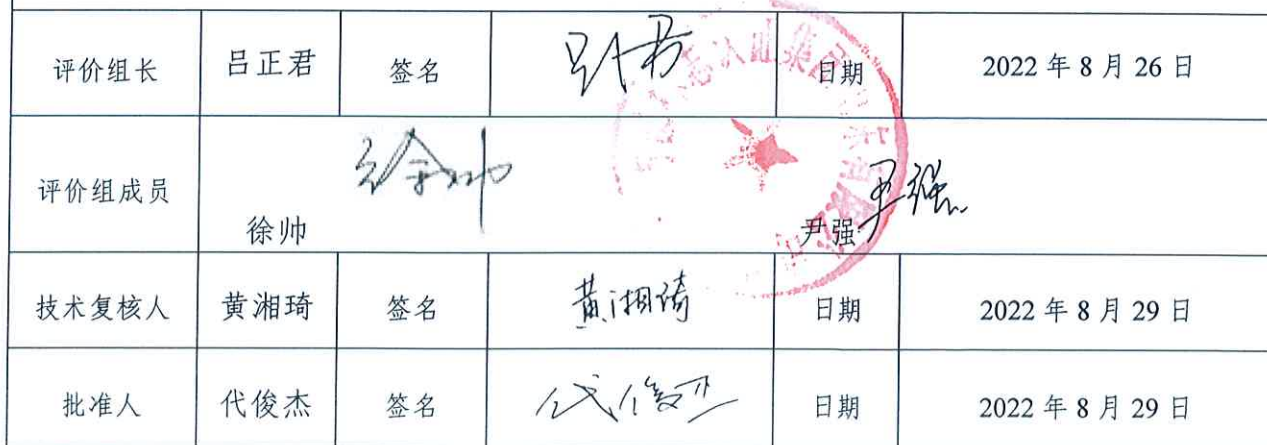 评价组长 吕正君 签名 日期 2022 年 8 月 26 日
评价组成员 徐帅 徐帅 尹强 尹强
技术复核人 黄湘琦 签名 黄湘琦 日期 2022 年 8 月 29 日
批准人 代俊杰 签名 代俊杰 日期 2022 年 8 月 29 日